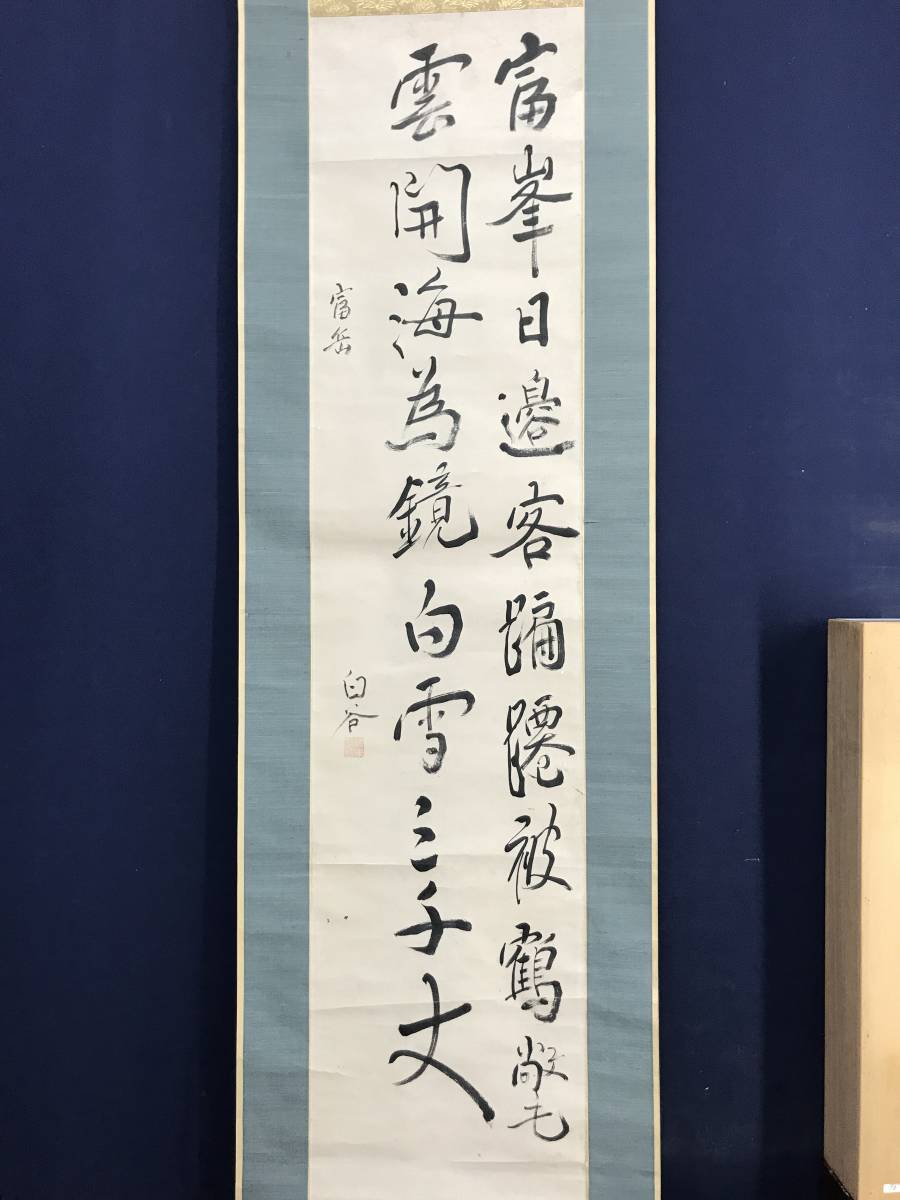 富峯日邊客蹁躚被鶴氅
雲開海為鏡白雪三千丈
富岳
臼谷